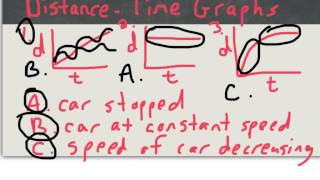 Distance-Time Graphs
1. d t B.
2. d t A.
3. d t C.
A. car stopped
B. car at constant speed
C. speed of car decreasing